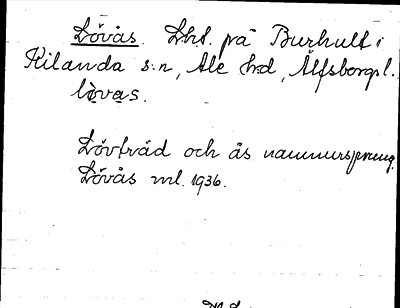 Lövås. Lht. på Burhult i
Kilanda s:n, Ale hd, Älfsborgsl.
lòvas.
Lövträd och ås namnursprung.
Lövås ml. 1936.